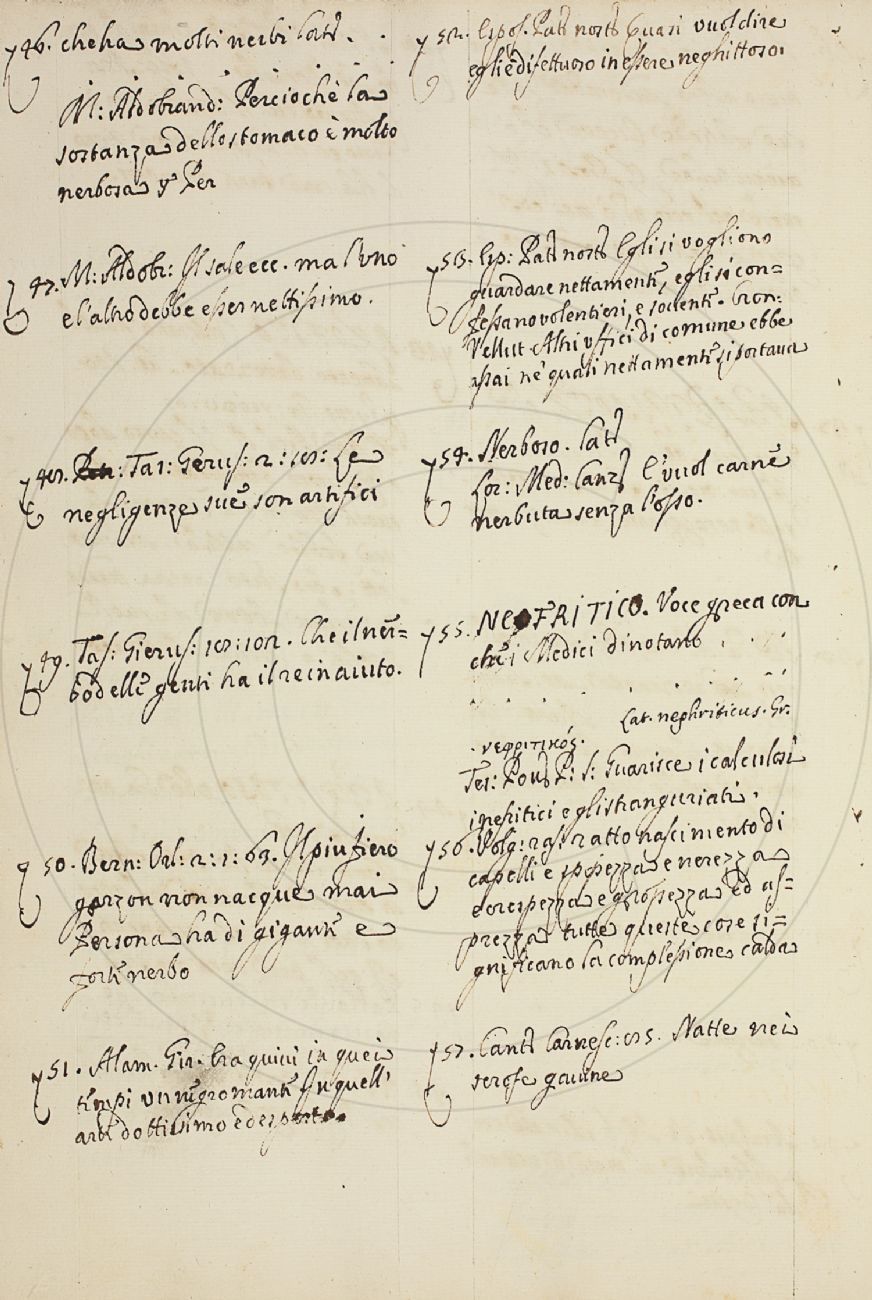 46. che ha molti nerbi Lat.
M: Aldobrand: Percioche la
sostanza dello stomaco è molto
nerbosa Per
47. M: Aldobr: Il sale ecc. ma l'uno
e l'altro debbe esser nettissimo.
48. Tas: Gerus: 2: 18: Le
negligenze sue son artifici
49. Tas: Gierus: 18: 102. Che il ner=
bo delle genti ha il re in aiuto.
50. Bern: Orl: 2: 1: 63. Il piu fiero
garzon non nacque mai
Persona ha di gigante e
forte nerbo
51. Alam. Gir. Era quivi in quei
tempi un negromante In quell'
arte dottissimo ed esperto
52. Espos. Pat: nost: Quasi vuol dire
egli è difettuoso in essere neghittoso.
53. Esp: Pat: nost: Egli si vogliono
guardare nettamente, egli si con=
fessano volentieri, e sovente. Cron:
Vellut. Altri uffici di comune ebbe
assai ne' quali nettamente si portava
54. Nerboro. Lat
Lor: Med: Canz E' vuol carne
nerbuta senza l'osso.
55. NEOFRITICO. Voce greca con
che i Medici dinotano
Lat. nephriticus. Gr.
νεφριτικός.
Tes: Pov: P: S: Guarisce i calculosi
i nefritici e gli stranguriati.
56. Volg: ras: ratto nascimento di
capelli e spessezza e nerezza
e crespezza e grossezza ed as=
prezza tutte queste cose si=
gnificano la complessione calda
57. Cant: Carnesc: 85. Natte nei
scrofe gavine